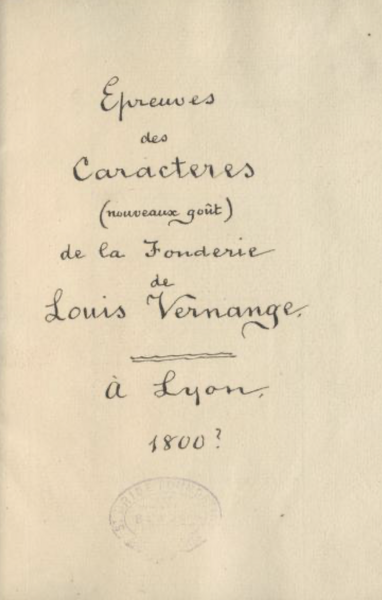 Epreuves
des
Caracteres
(nouveaux goût)
de la Fonderie
de
Louis Vernange.
à Lyon.
1800?